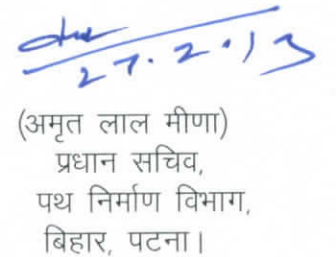 27.2.13
(अमृत लाल मीणा)
प्रधान सचिव,
पथ निर्माण विभाग,
बिहार, पटना।